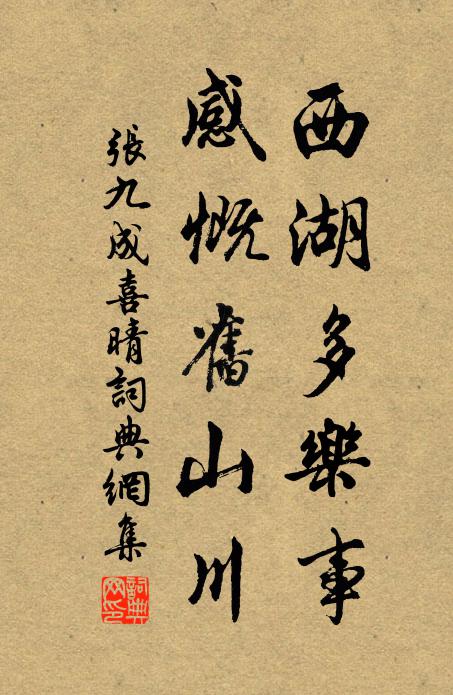 西湖多樂事
感慨舊山川
張九成喜晴詞典網集
詞典
网印